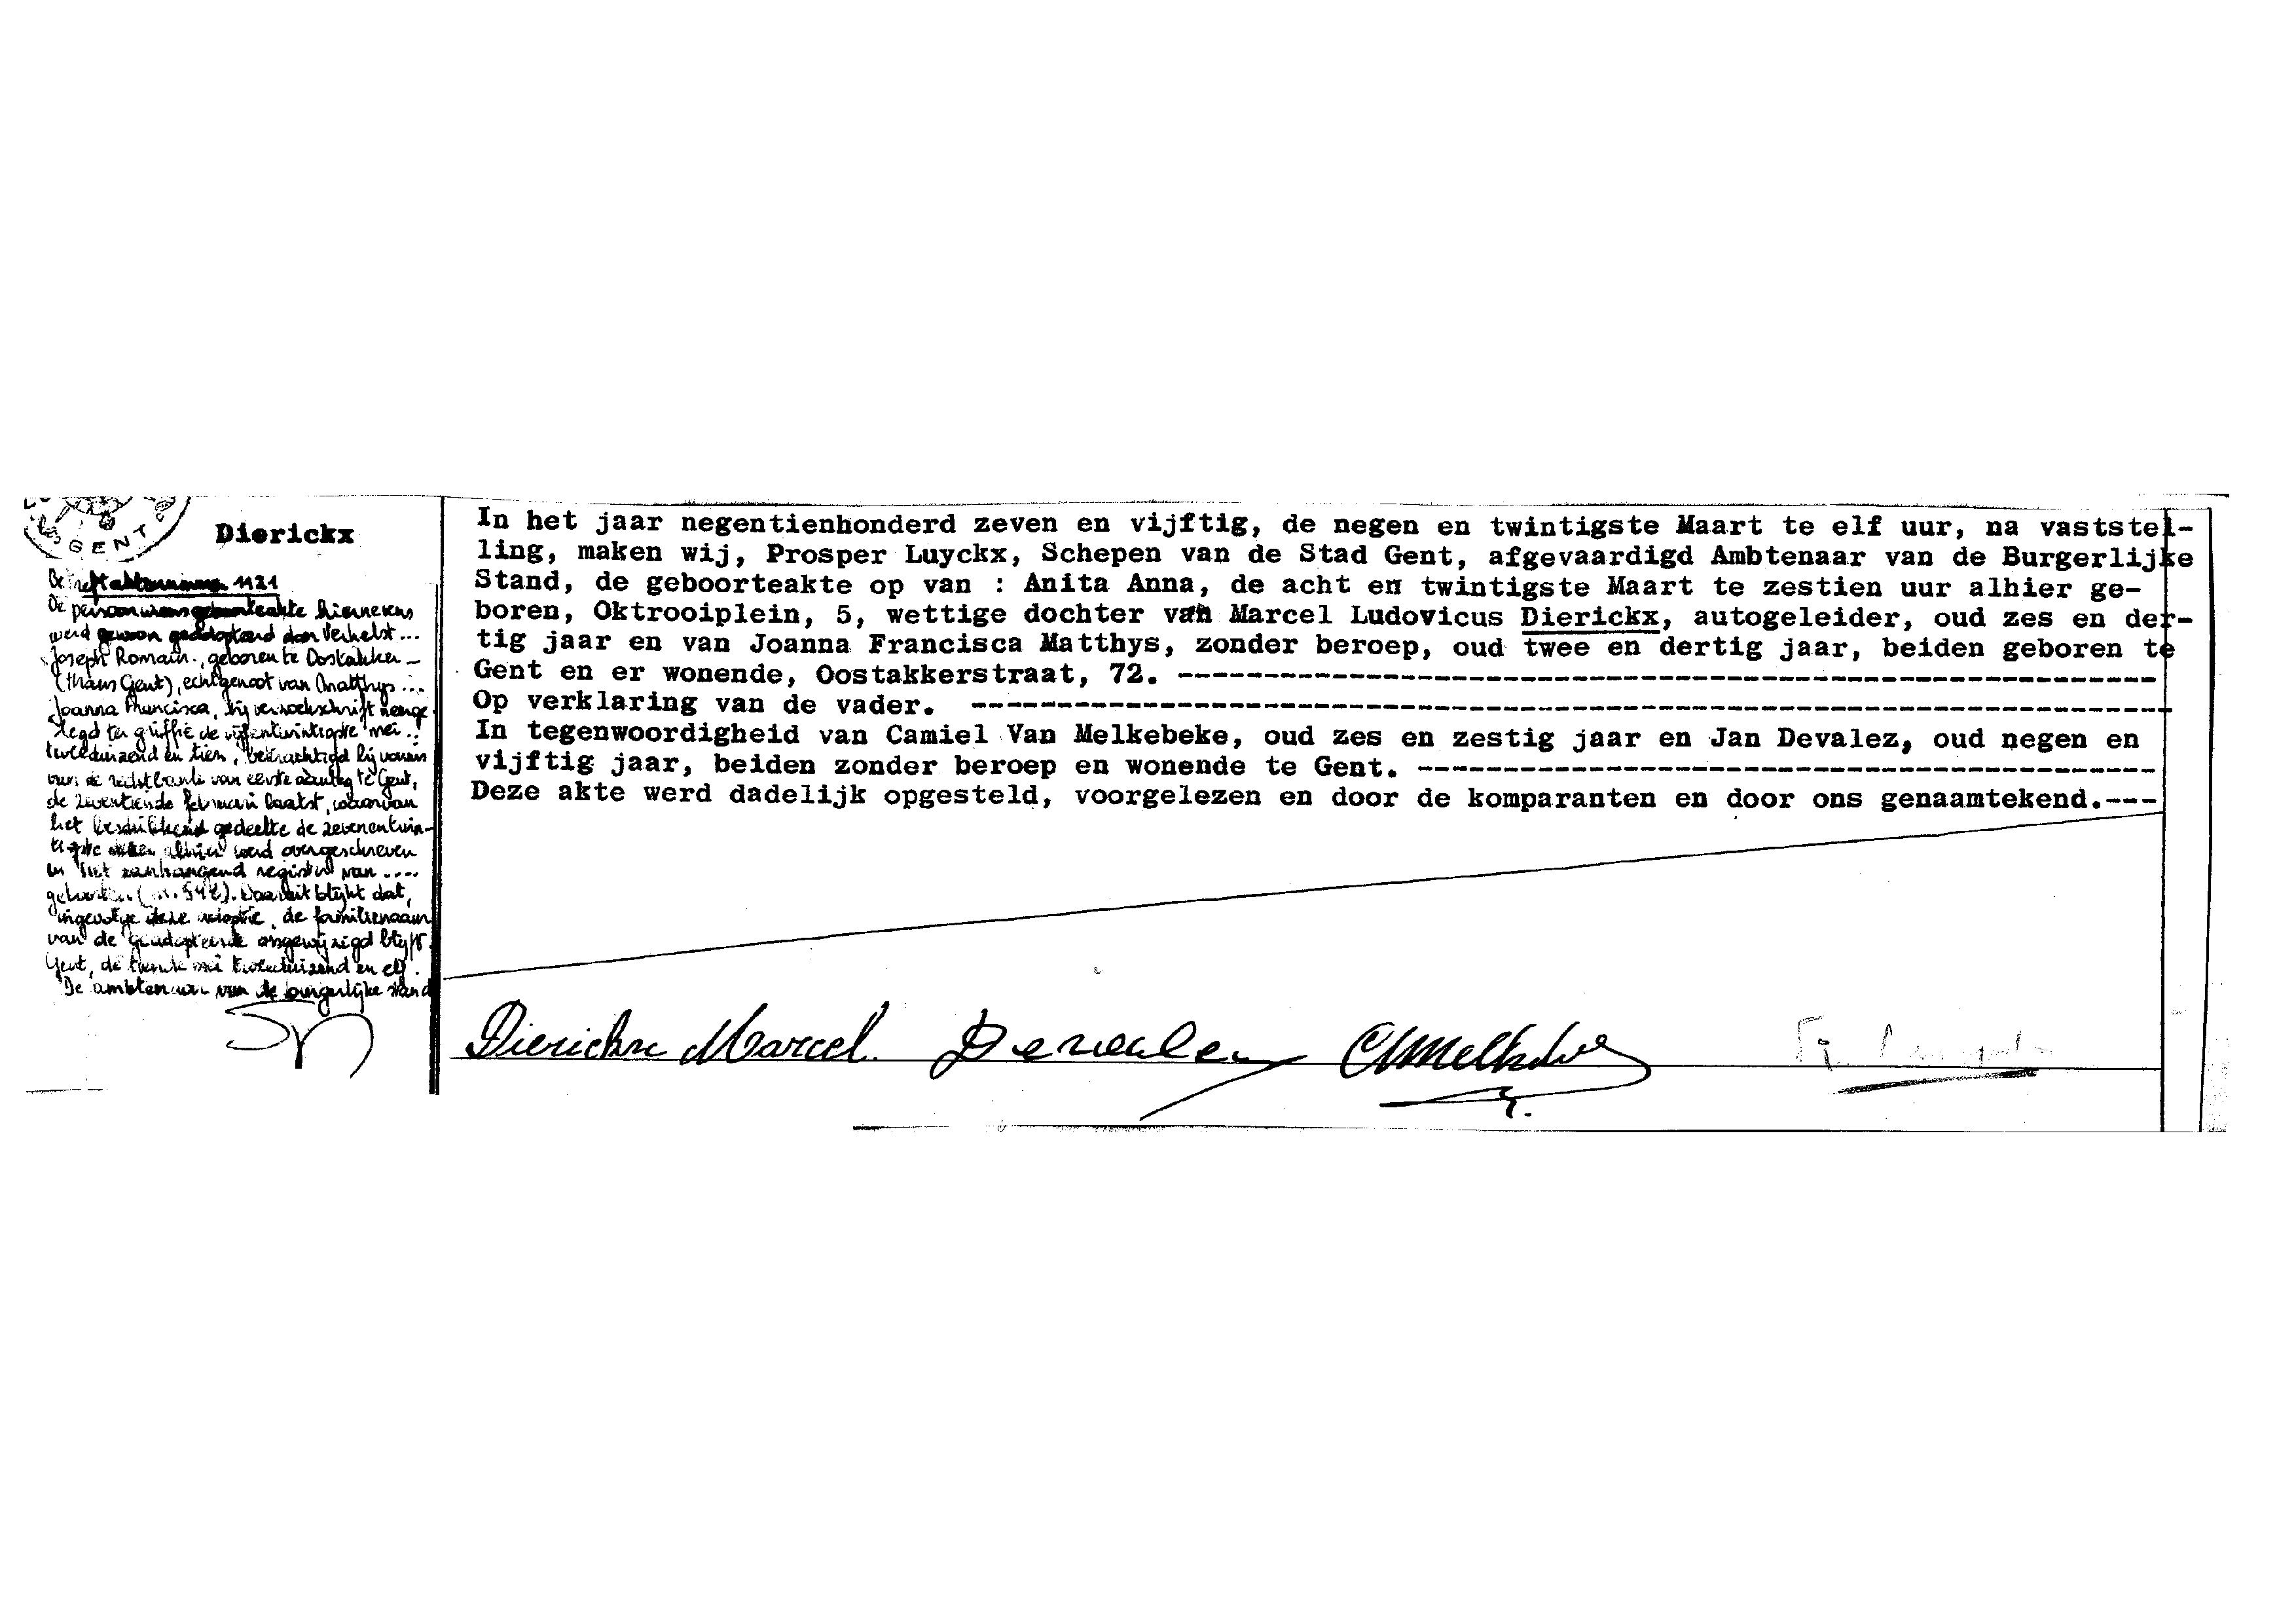 GENT
Dierickx
Betreft aktenummer 1121
De persoon wens geboorteakte hiernevens
werd gewoon geadopteerd door Verhelst...
Joseph Romain., geboren te Oostakker -
(thans Gent), echtgenoot van Matthys ...
Joanna Francisca, bij verzoekschrift neerge-
legd ter griffie de vijfentwintigste mei ..
tweeduizend en tien, bekrachtigd bij vonnis
van de rechtbank van eerste aanleg te Gent,
de zeventiende februari laatst, waarvan
het beschikkend gedeelte de zevenentwin-
tigste alhier werd overgeschreven
in het aanhangend register van ....
geboorten ( ). Daaruit blijkt dat,
ingevolge deze adoptie, de familienaam
van de geadopteerde ongewijzigd blijft.
Gent, de mei tweeduizend en elf.
De ambtenaar van de burgerlijke stand
In het jaar negentienhonderd zeven en vijftig, de negen en twintigste Maart te elf uur, na vaststel-
ling, maken wij, Prosper Luyckx, Schepen van de Stad Gent, afgevaardigd Ambtenaar van de Burgerlijke
Stand, de geboorteakte op van : Anita Anna, de acht en twintigste Maart te zestien uur alhier ge-
boren, Oktrooiplein, 5, wettige dochter van Marcel Ludovicus Dierickx, autogeleider, oud zes en der-
tig jaar en van Joanna Francisca Matthys, zonder beroep, oud twee en dertig jaar, beiden geboren te
Gent en er wonende, Oostakkerstraat, 72. ----------
Op verklaring van de vader. ----------
In tegenwoordigheid van Camiel Van Melkebeke, oud zes en zestig jaar en Jan Devalez, oud negen en
vijftig jaar, beiden zonder beroep en wonende te Gent. ----------
Deze akte werd dadelijk opgesteld, voorgelezen en door de komparanten en door ons genaamtekend.---
Dierickx Marcel. Devalez